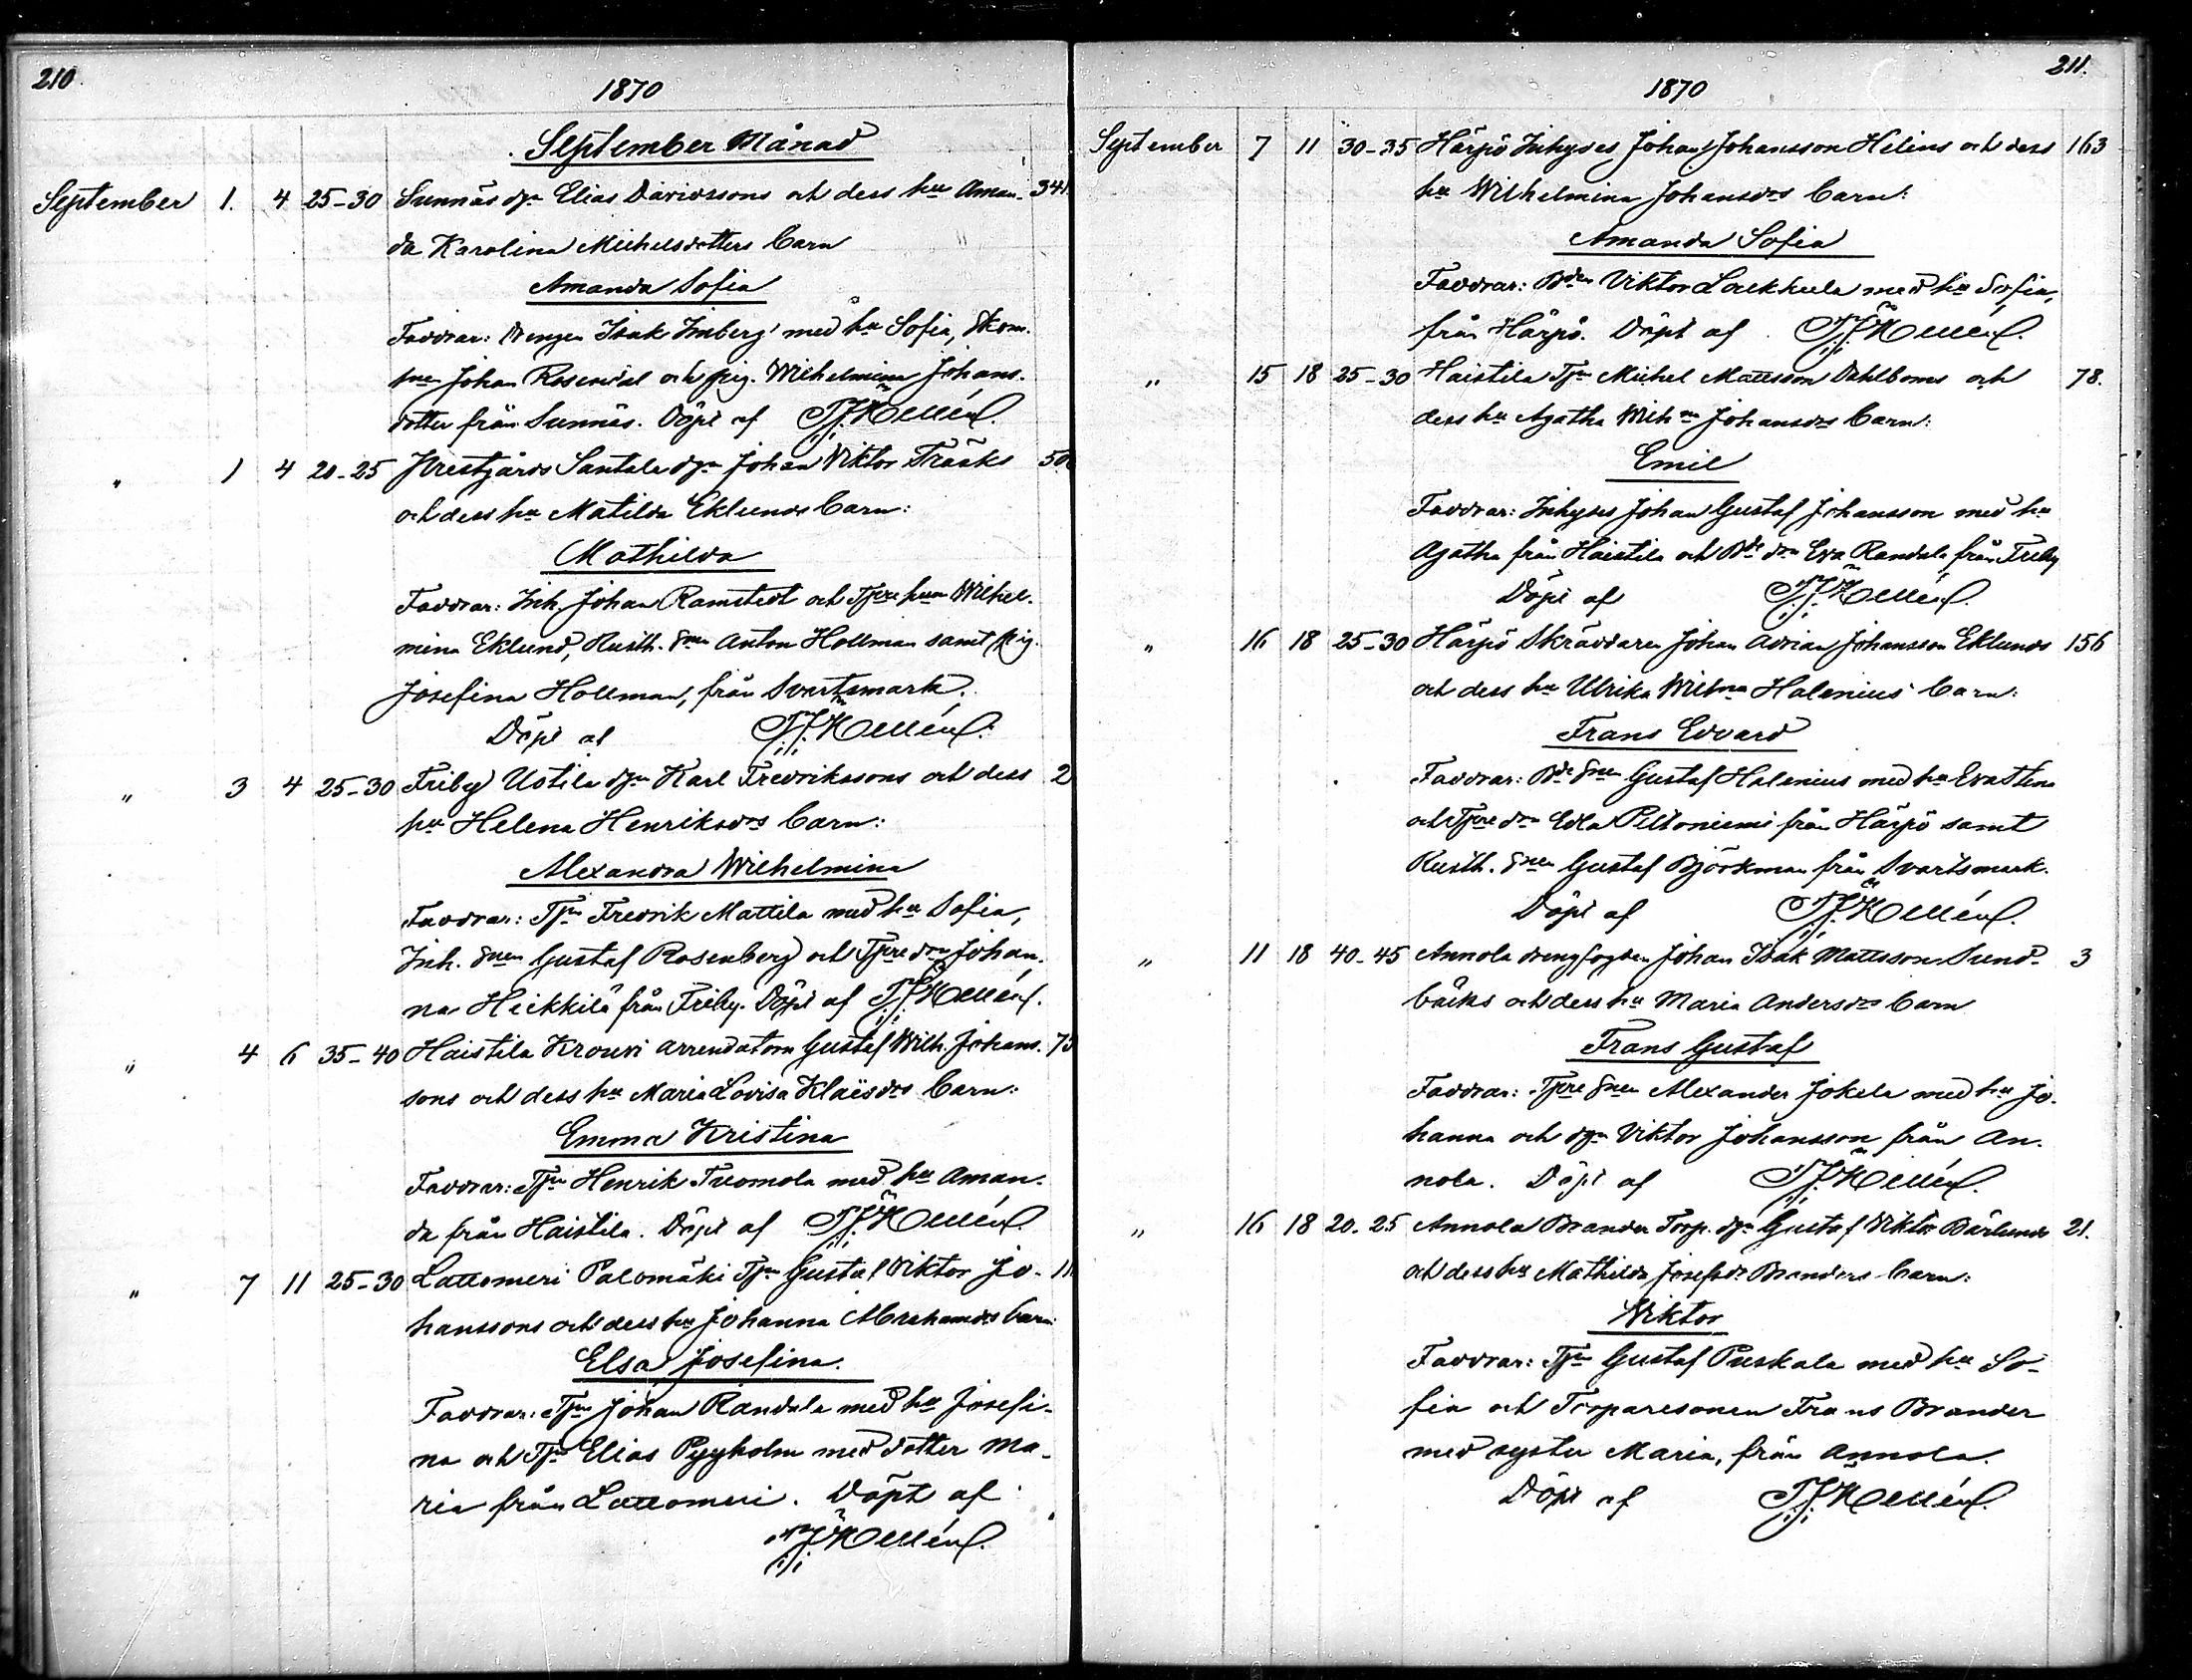 210.
1870
September Månad
September 1. 4 25-30 Sunnäs dgn Elias Davidssons och dess hu Aman- 341.
da Karolina Michelsdotters barn
Amanda Sofia
Faddrar: Drengen Isak Imberg med hu Sofia, Skom.
snen Johan Rosendal och pig. Wilhelmina Johans-
dotter från Sunnäs. Döpt af
" 1 4 20-25 Prestgårds Santala dgn Johan Viktor Träsks 50
och dess hu Matilda Eklunds barn:
Mathilda
Faddrar: Inh. Johan Ramstedt och Tjre hun Wilhel-
mina Eklund, Rusth. snen Anton Hollman samt pig.
Josefina Hollman, från Svartsmark.
Döpt af
" 3 4 25-30 Friby Uotila dgn Karl Fredrikssons och dess 2
hu Helena Henriksdrs barn:
Alexandra Wilhelmina
Faddrar: Tjn Fredrik Mattila med hu Sofia,
Inh. snen Gustaf Rosenberg och Tjre drn Johan-
na Heikkilä från Friby. Döpt af
" 4 6 35-40 Haistila Krouvi arrendatorn Gustaf Wilh. Johans- 75
sons och dess hu Maria Lovisa Klaësdrs barn:
Emma Kristina
Faddrar: Tjn Henrik Tuomola med hu Aman-
da från Haistila. Döpt af
" 7 11 25-30 Lattomeri Palomäki Tjn Gustaf Viktor Jo- 11
hanssons och dess hu Johanna Abrahamsdrs barn
Elsa Josefina.
Faddrar: Tjn Johan Randala med hu Josefi-
na och Tjn Elias Pyyholm med dotter Ma-
ria från Lattomeri. Döpt af
211.
1870
September 7 11 30-35 Härpö Inhyses Johan Johansson Helins och dess 163
hu Wilhelmina Johansdrs barn:
Amanda Sofia
Faddrar: Bden Viktor Laekkula med hu Sofia,
från Härpö. Döpt af
" 15 18 25-30 Haistila Tjn Michel Mattsson Dahlboms och 78.
dess hu Agatha Wilhna Johansdrs barn:
Emil
Faddrar: Inhyses Johan Gustaf Johansson med hu
Agatha från Haistila och Bde drn Eva Randala från Friby
Döpt af
" 16 18 25-30 Härpö Skräddaren Johan Adrian Johansson Eklunds 156
och dess hu Ulrika Wilhna Halenius barn:
Frans Edvard
Faddrar: Bde snen Gustaf Halenius med hu Eva Stina
och Tjre drn Edla Peltoniemi från Härpö samt
Rusth. snen Gustaf Björkman från Svartsmark.
Döpt af
" 11 18 40-45 Annola drengfogden Johan Isak Mattsson Sund- 3
bäcks och dess hu Maria Andersdrs barn
Frans Gustaf
Faddrar: Tjre snen Alexander Jokela med hu Jo-
hanna och dgn Viktor Johansson från An-
nola. Döpt af
" 16 18 20-25 Annola Brander Torp. dgn Gustaf Viktor Bärlunds 21.
och dess hu Mathilda Josefsdr Branders barn:
Viktor
Faddrar: Tjn Gustaf Puskala med hu So-
fia och Torparesonen Frans Brander
med syster Maria, från Annola.
Döpt af